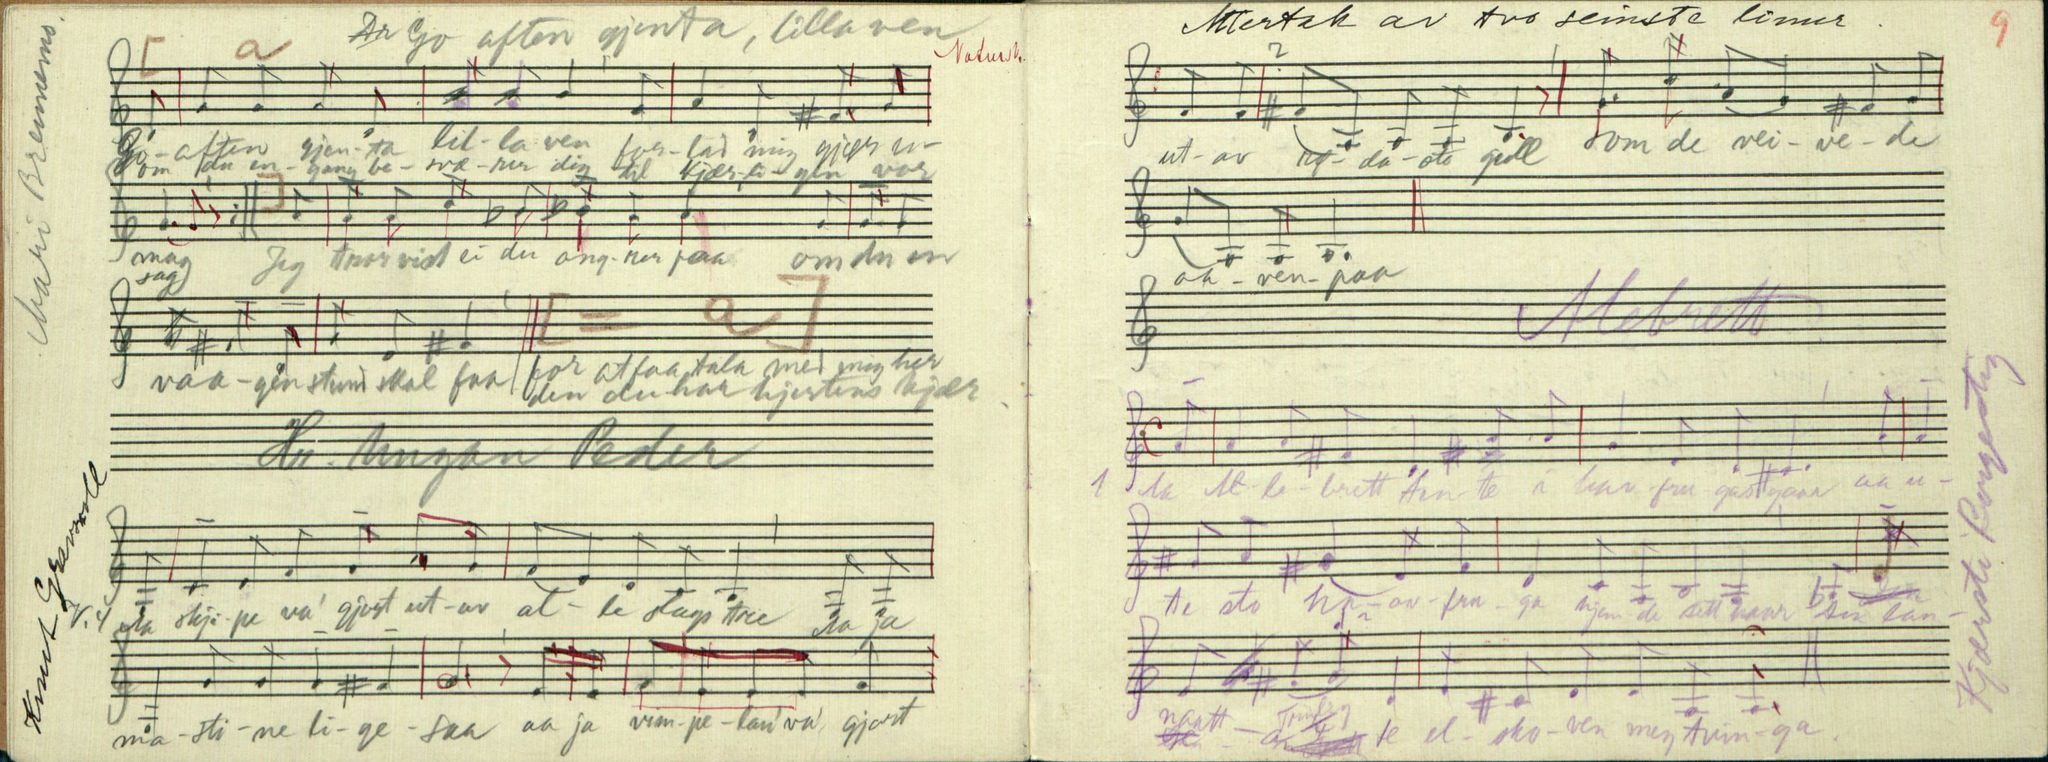 Go aften gjenta, lilla ven
a
Mari Bremsens
Go-aften gjen-ta lil-la ven for-lad mig gjær u-
om du en-gang be-svæ-rer dig til kjær-li-gen var
mag Jeg tror vist ei du ang-rer paa om du en
sag
vaa-gen stund skal faa for at faa tala med mig her
den du har hjertens kjær
[= a]
Hr. Ungan Peder
Knut Gravvoll
V. 4 Aa skji-pe va' gjort ut-av al-le slags tree Aa ja
ma-sti-ne li-ge-saa aa ja vim-pe-lan' va' gjort
Attertak av tvo seinste linur.
9
2
ut-av rø-da-ste gull som de vei-ve-de
aa-ven-paa
Alebrett
1 Aa Al-le-brett han te i hav-fru-gaar aa u-
te sto hav-fru-ga hjem de sitt haar
naatt te el-sko-ven meg tvin-ga.